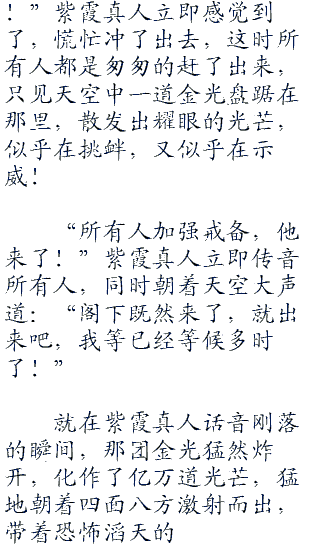 ！”紫霞真人立即感觉到
了，慌忙冲了出去，这时所
有人都是匆匆的赶了出来，
只见天空中一道金光盘踞在
那里，散发出耀眼的光芒，
似乎在挑衅，又似乎在示
威！
“所有人加强戒备，他
来了！”紫霞真人立即传音
所有人，同时朝着天空大声
道：“阁下既然来了，就出
来吧，我等已经等候多时
了！”
就在紫霞真人话音刚落
的瞬间，那团金光猛然炸
开，化作了亿万道光芒，猛
地朝着四面八方激射而出，
带着恐怖滔天的